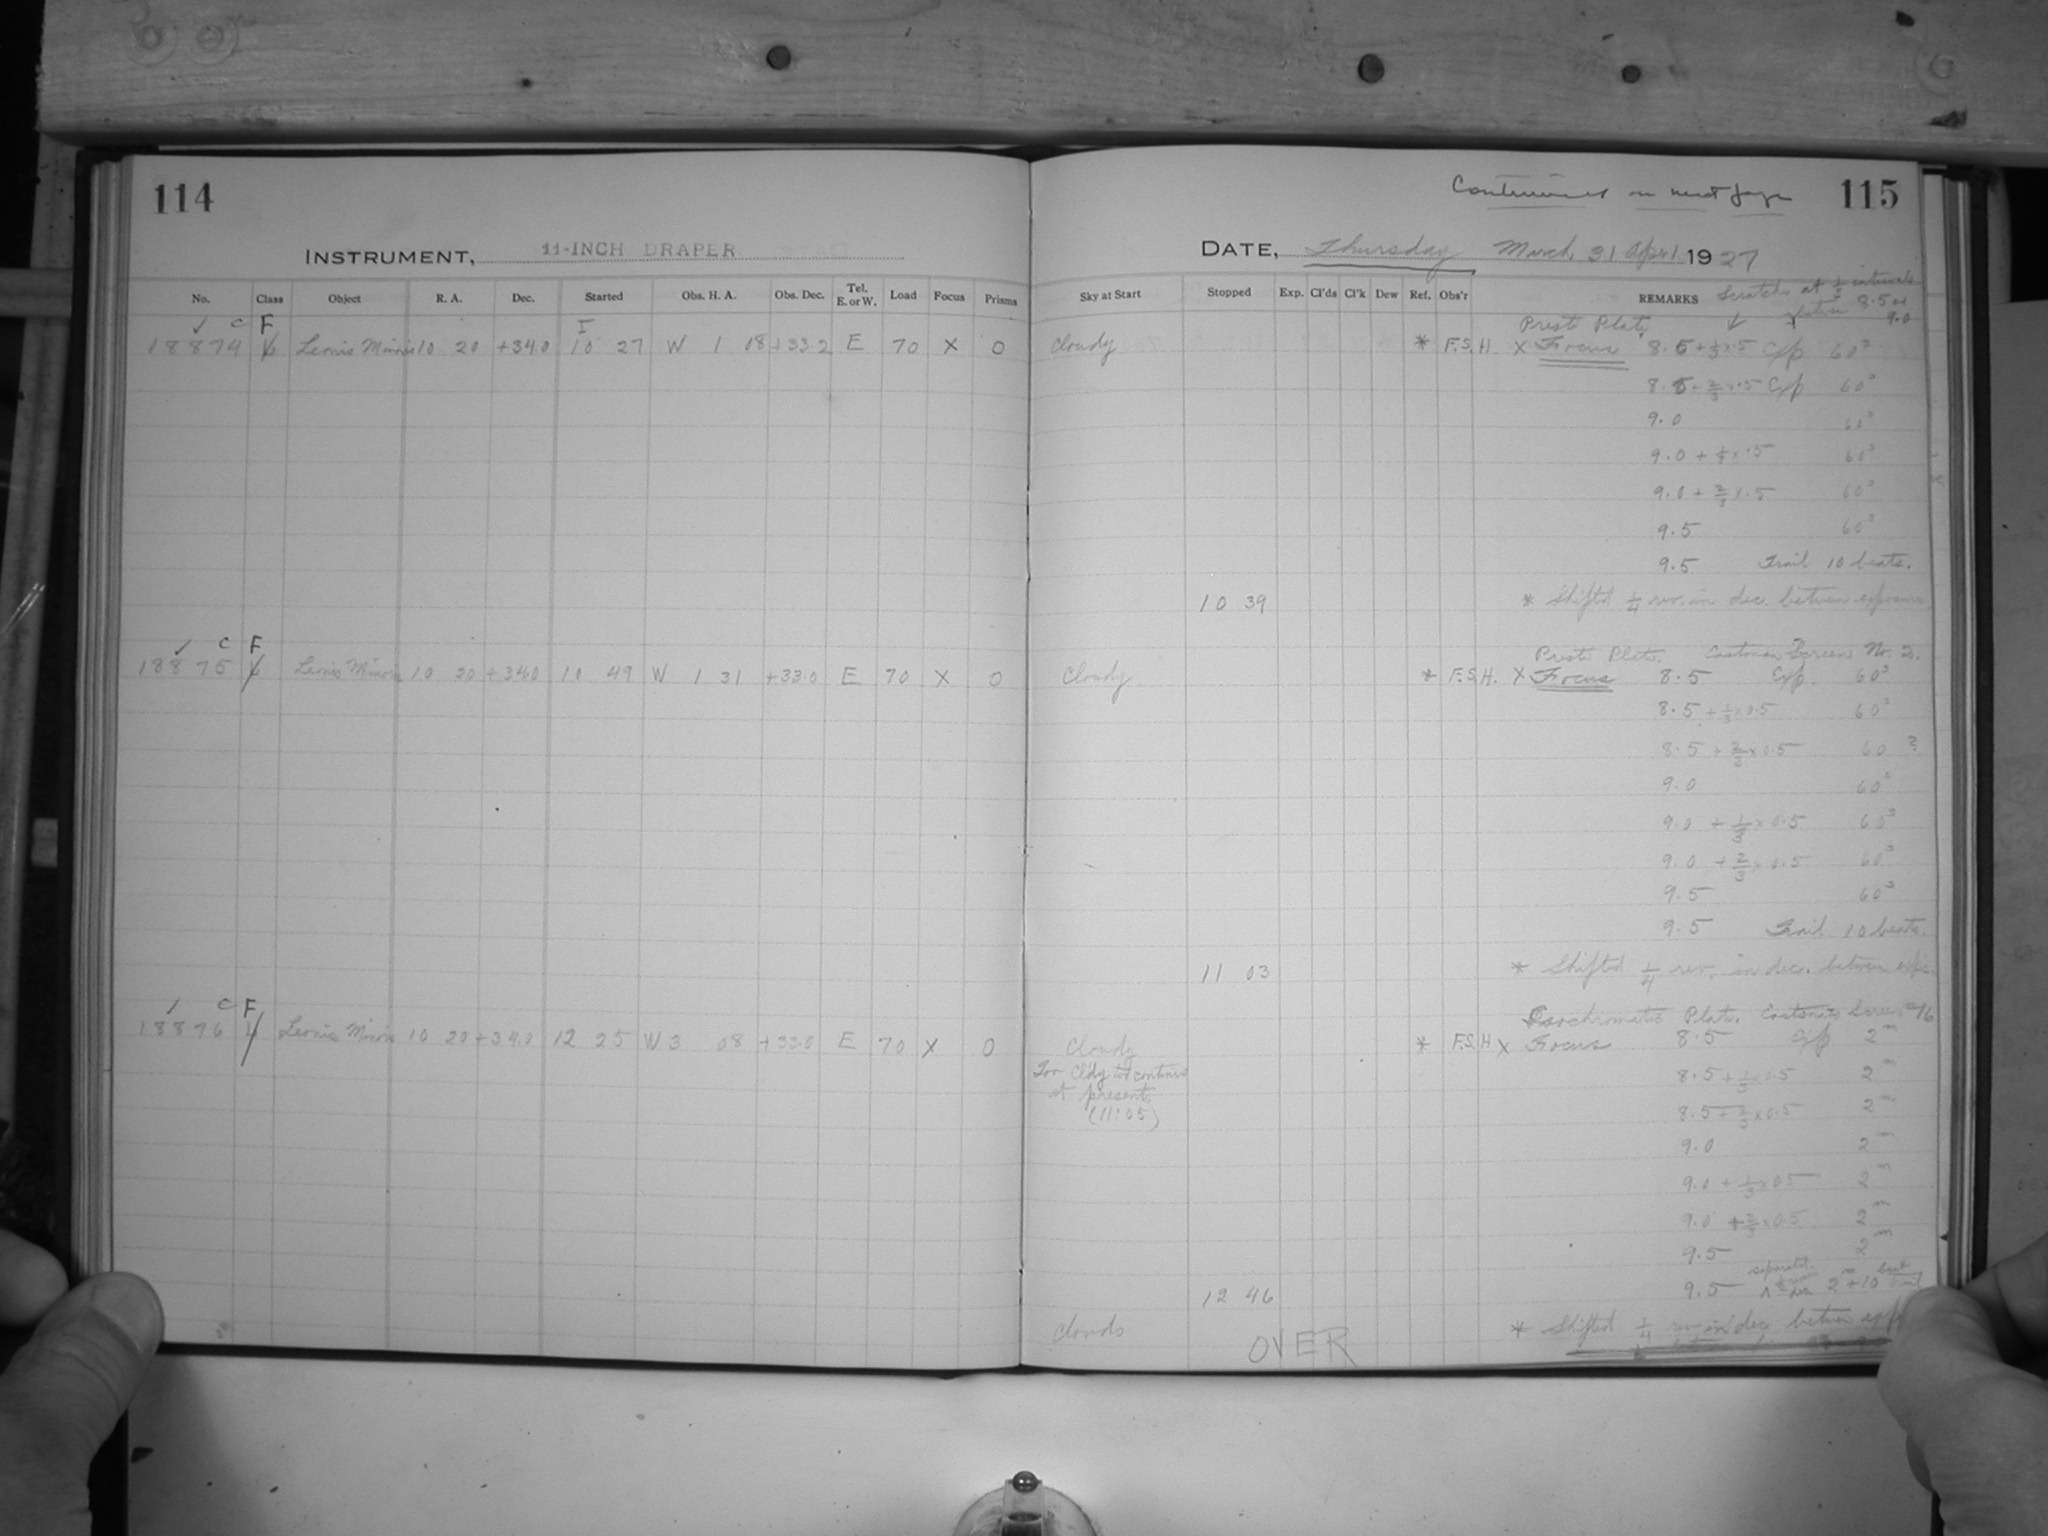 114
INSTRUMENT, 11-INCH DRAPER
No. Class Object R. A. Dec. Started Obs. H. A. Obs. Dec. Tel. E. or W. Load Focus Prisms
✓ C F I
18874 Leonis Minoris 10 20 +34.0 10 27 W 1 08 +33.2 E 70 X 0
✓ C F
18875 Leonis Minoris 10 20 +34.0 10 49 W 1 31 +33.0 E 70 X 0
C F
18876 Leonis Minoris 10 20 +34.0 12 25 W 3 08 +33.0 E 70 X 0
Continued on next page 115
DATE, Thursday March 31 April 1927
Sky at Start Stopped Exp. Cl'ds Cl'k Dew Ref. Obs'r REMARKS Scratches at 1/3 intervals
between 8.5 +
9.0
Presto Plate
Cloudy * F.S.H. X Focus 8.5 + 1/3 x .5 Exp 60s
8.5 + 2/3 x .5 Exp 60s
9.0 60s
9.0 + 1/3 x .5 60s
9.0 + 2/3 x .5 60s
9.5 60s
9.5 Trail 10 beats.
10 39 * Shifted 1/4 rev. in dec. between exposures
Presto Plate. Eastman Screen No. 2.
Cloudy * F.S.H. X Focus 8.5 Exp. 60s
8.5 + 1/3 x 0.5 60s
8.5 + 2/3 x 0.5 60 ?
9.0 60s
9.0 + 1/3 x 0.5 60s
9.0 + 2/3 x 0.5 60s
9.5 60s
9.5 Trail 10 beats.
11 03 * Shifted 1/4 rev. in dec. between exp's
Plate. Eastman Screen #16
Cloudy * F.S.H X Focus 8.5 Exp 2m
Too Cl'dy to continue
at present.
(11:05)
8.5 + 1/3 x 0.5 2m
8.5 + 2/3 x 0.5 2m
9.0 2m
9.0 + 1/3 x 0.5 2m
9.0 + 2/3 x 0.5 2m
9.5 2m
12 46 9.5 separated dec 2m + 10 beat trail
Clouds OVER * Shifted 1/4 rev in dec between exp